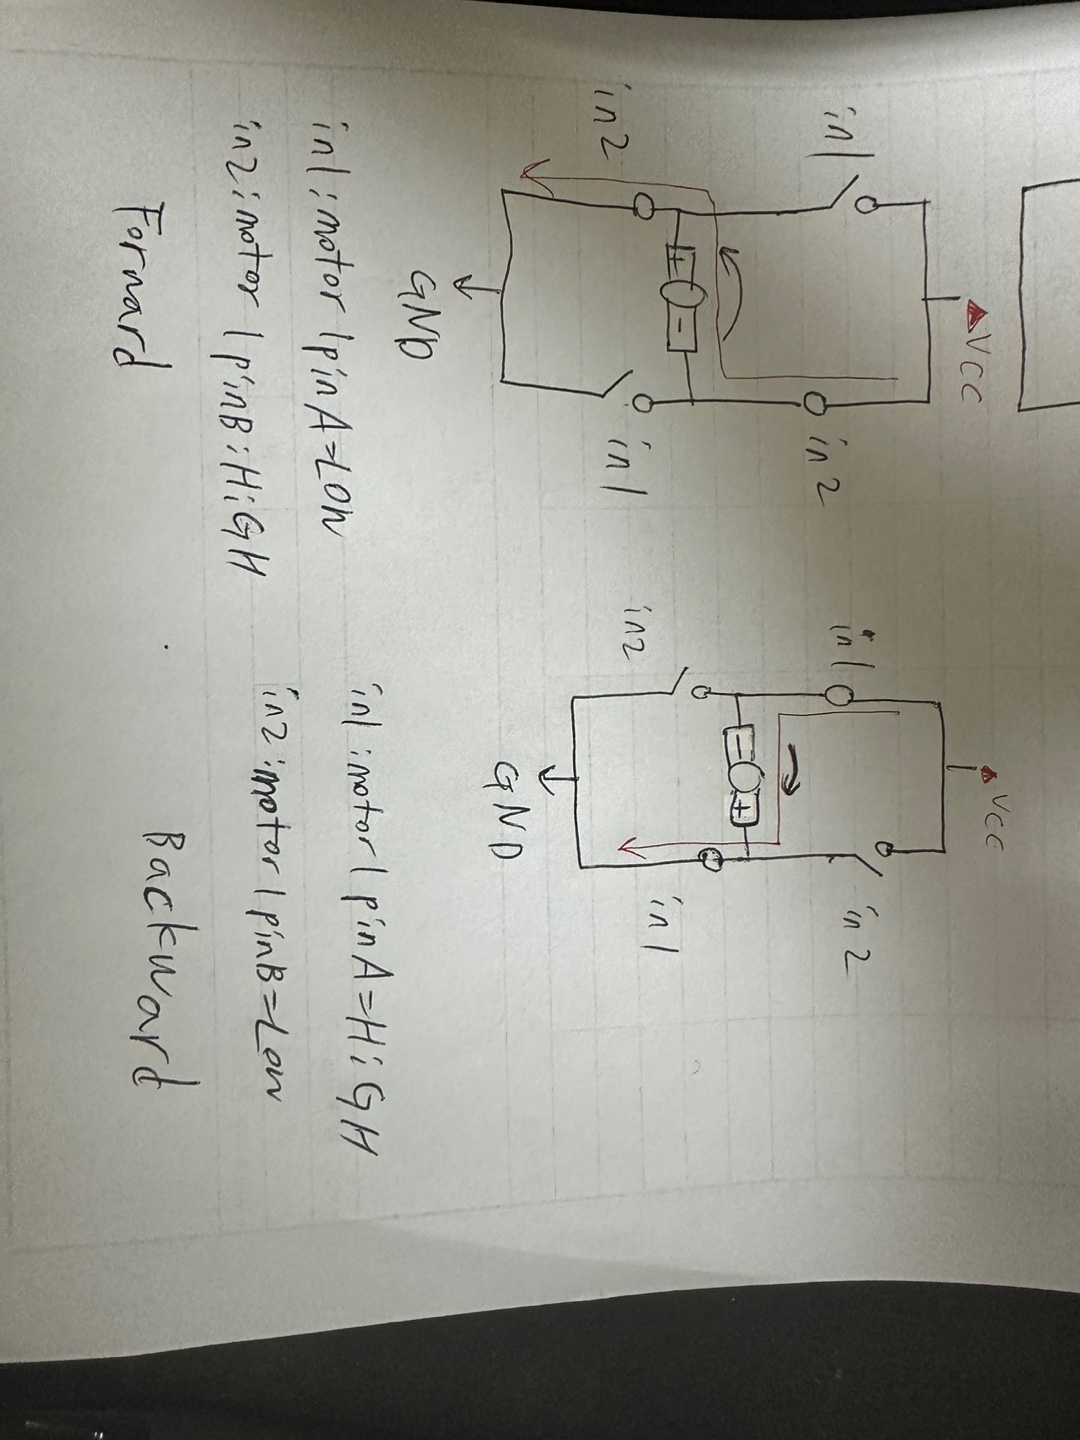 VCC
in1
in2
+
-
in2
in1
GND
in1:motor1pinA=LOW
in2:motor1pinB:HiGH
Forward
VCC
in1
in2
-
+
in2
in1
GND
in1:motor1pinA=HiGH
in2:motor1pinB=Low
Backward